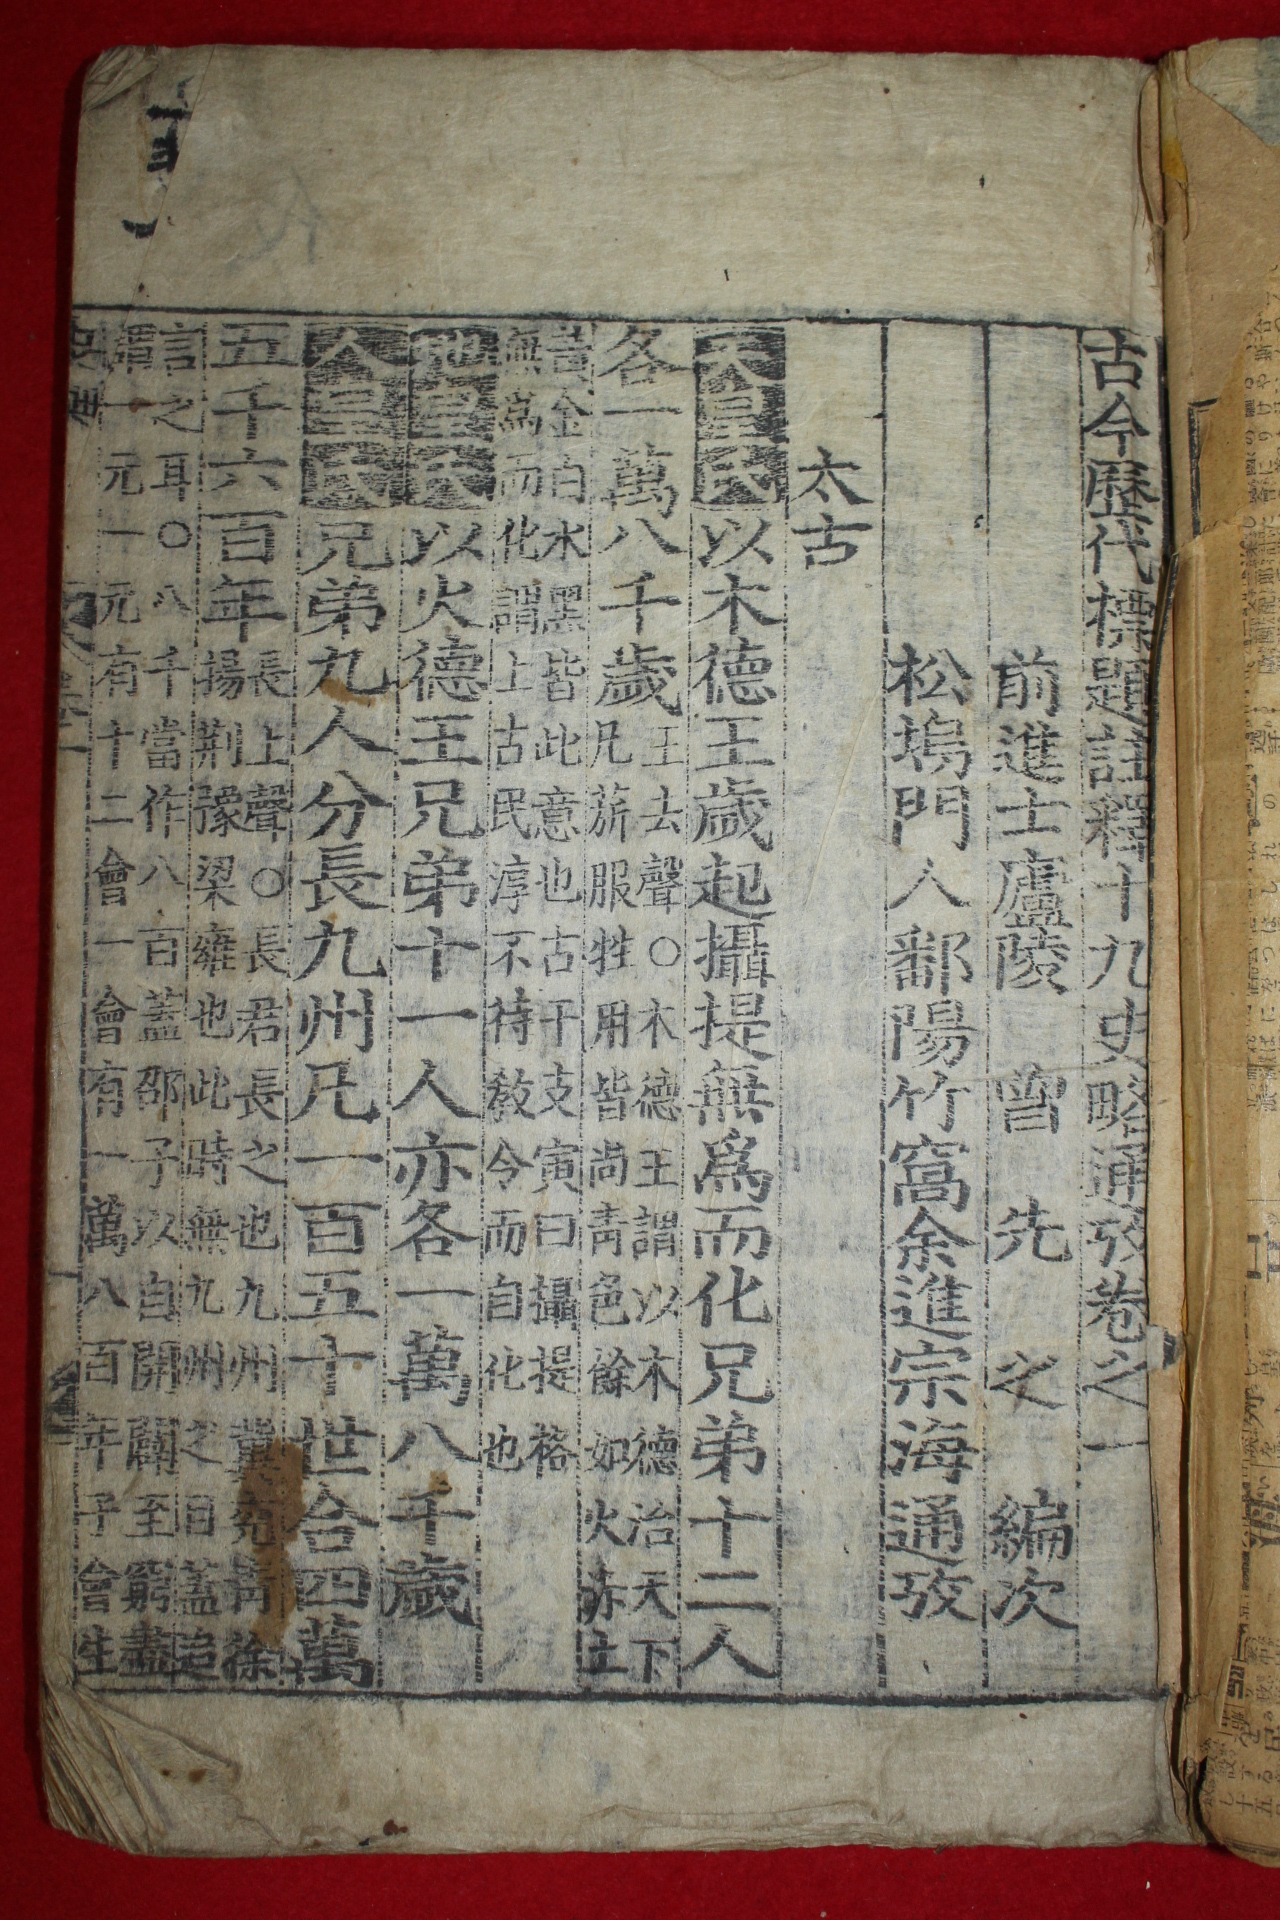 古今歷代標題註釋十九史略通攷卷之一
前進士廬陵 曾 先 之 編次
松塢門人鄱陽竹窩余進宗海通攷
太古
天皇氏以木德王歲起攝提無爲而化兄弟十二人
各一萬八千歲
王去聲○木德王謂以木德治天下
凡薪服牲用皆尚靑色餘如火赤土
黃金白水黑皆此意也古干支寅曰攝提格
無爲而化謂上古民淳不待敎令而自化也
地皇氏以火德王兄弟十一人亦各一萬八千歲
人皇氏兄弟九人分長九州凡一百五十世合四萬
五千六百年
長上聲○長君長之也九州冀兗靑徐
揚荊豫梁雍也此時無九州之目蓋追
言之耳○八千當作八百蓋邵子以自開闢至窮盡
謂一元一元有十二會一會有一萬八百年子會生